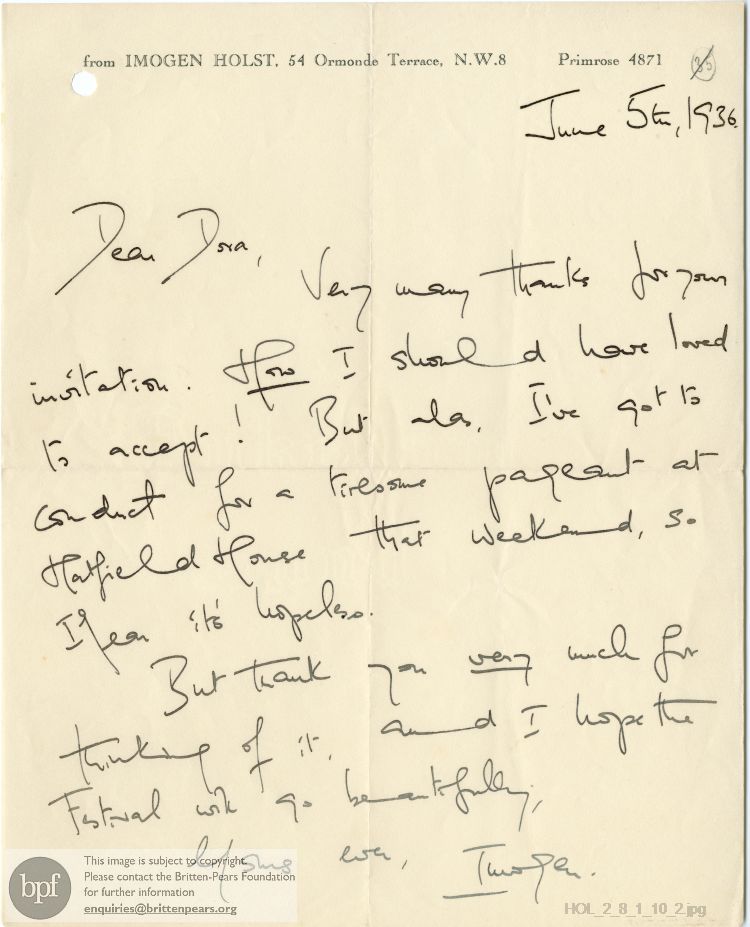 from IMOGEN HOLST, 54 Ormonde Terrace, N.W.8 Primrose 4871
35
June 5th, 1936.
Dear Dora,
Very many thanks for your
invitation. How I should have loved
to accept! But alas, I've got to
conduct for a tiresome pageant at
Hatfield House that weekend, so
I fear it's hopeless.
But thank you very much for
thinking of it, and I hope the
Festival will go beautifully,
Yours ever, Imogen.
bpf
This image is subject to copyright.
Please contact the Britten-Pears Foundation
for further information
enquiries@brittenpears.org
HOL_2_8_1_10_2.jpg